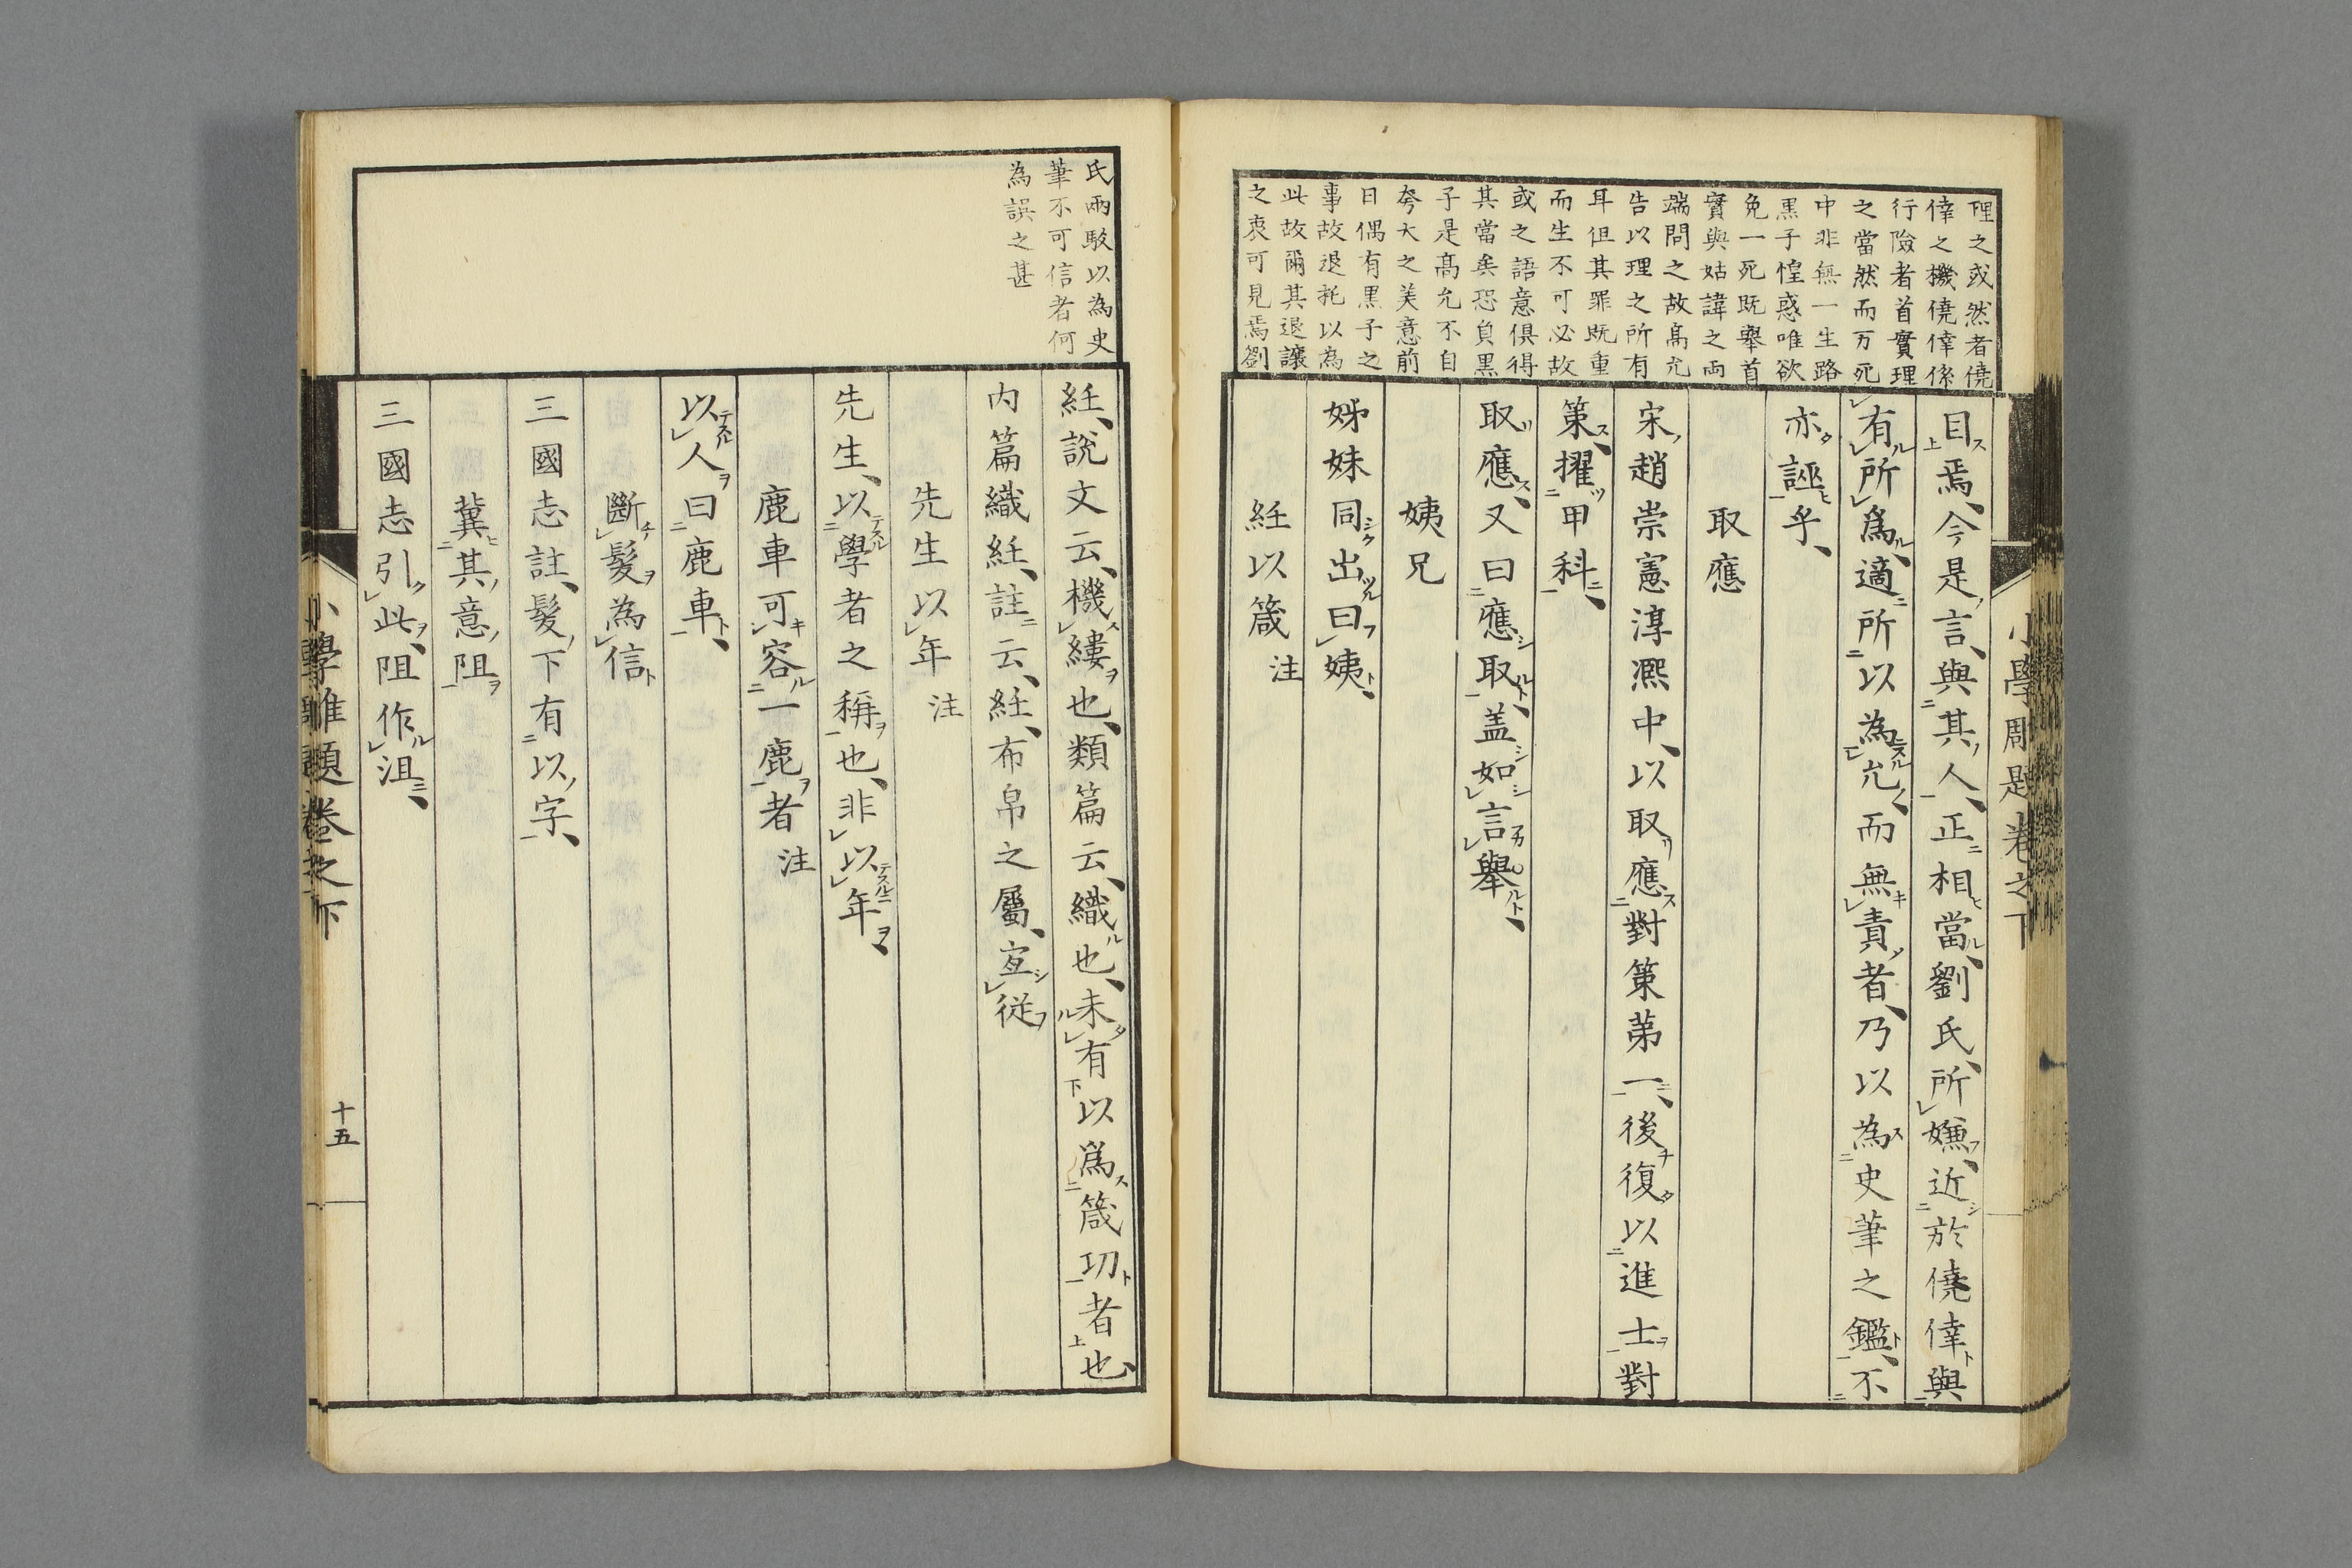 理之或然者僥
倖之機僥倖係
行險者首實理
之當然而万死
中非無一生路
黒子惶惑唯欲
免一死既舉首
實與姑諱之両
端問之故髙允
告以理之所有
耳但其罪既重
而生不可必故
或之語意倶得
其當矣恐負黒
子是髙允不自
夸大之美意前
日偶有黒子之
事故退托以為
此故爾其退讓
之衷可見焉劉
目焉、今是言、與其人、正相當、劉氏、所嫌、近於僥倖與
有所爲、適所以為允而無責者、乃以為史筆之鑑、不
亦誣乎、
取應
宋趙崇憲淳凞中、以取應對策苐一、後復以進士對
策、擢甲科、
取應、又曰應取、盖如言舉、
姨兄
姊妹同出曰姨、
紝以箴 注
氏両駁以為史
筆不可信者何
為誤之甚
紝、説文云、機縷也、類篇云、織也、未有以爲箴功者也、
内篇織紝、註云、紝、布帛之屬、宜従
先生以年 注
先生、以學者之稱也、非以年、
鹿車可容一鹿者 注
以人曰鹿車、
斷髮為信
三國志註、髮下有以字、
冀其意阻
三國志引此、阻作沮、
小學雕題卷之下
十五